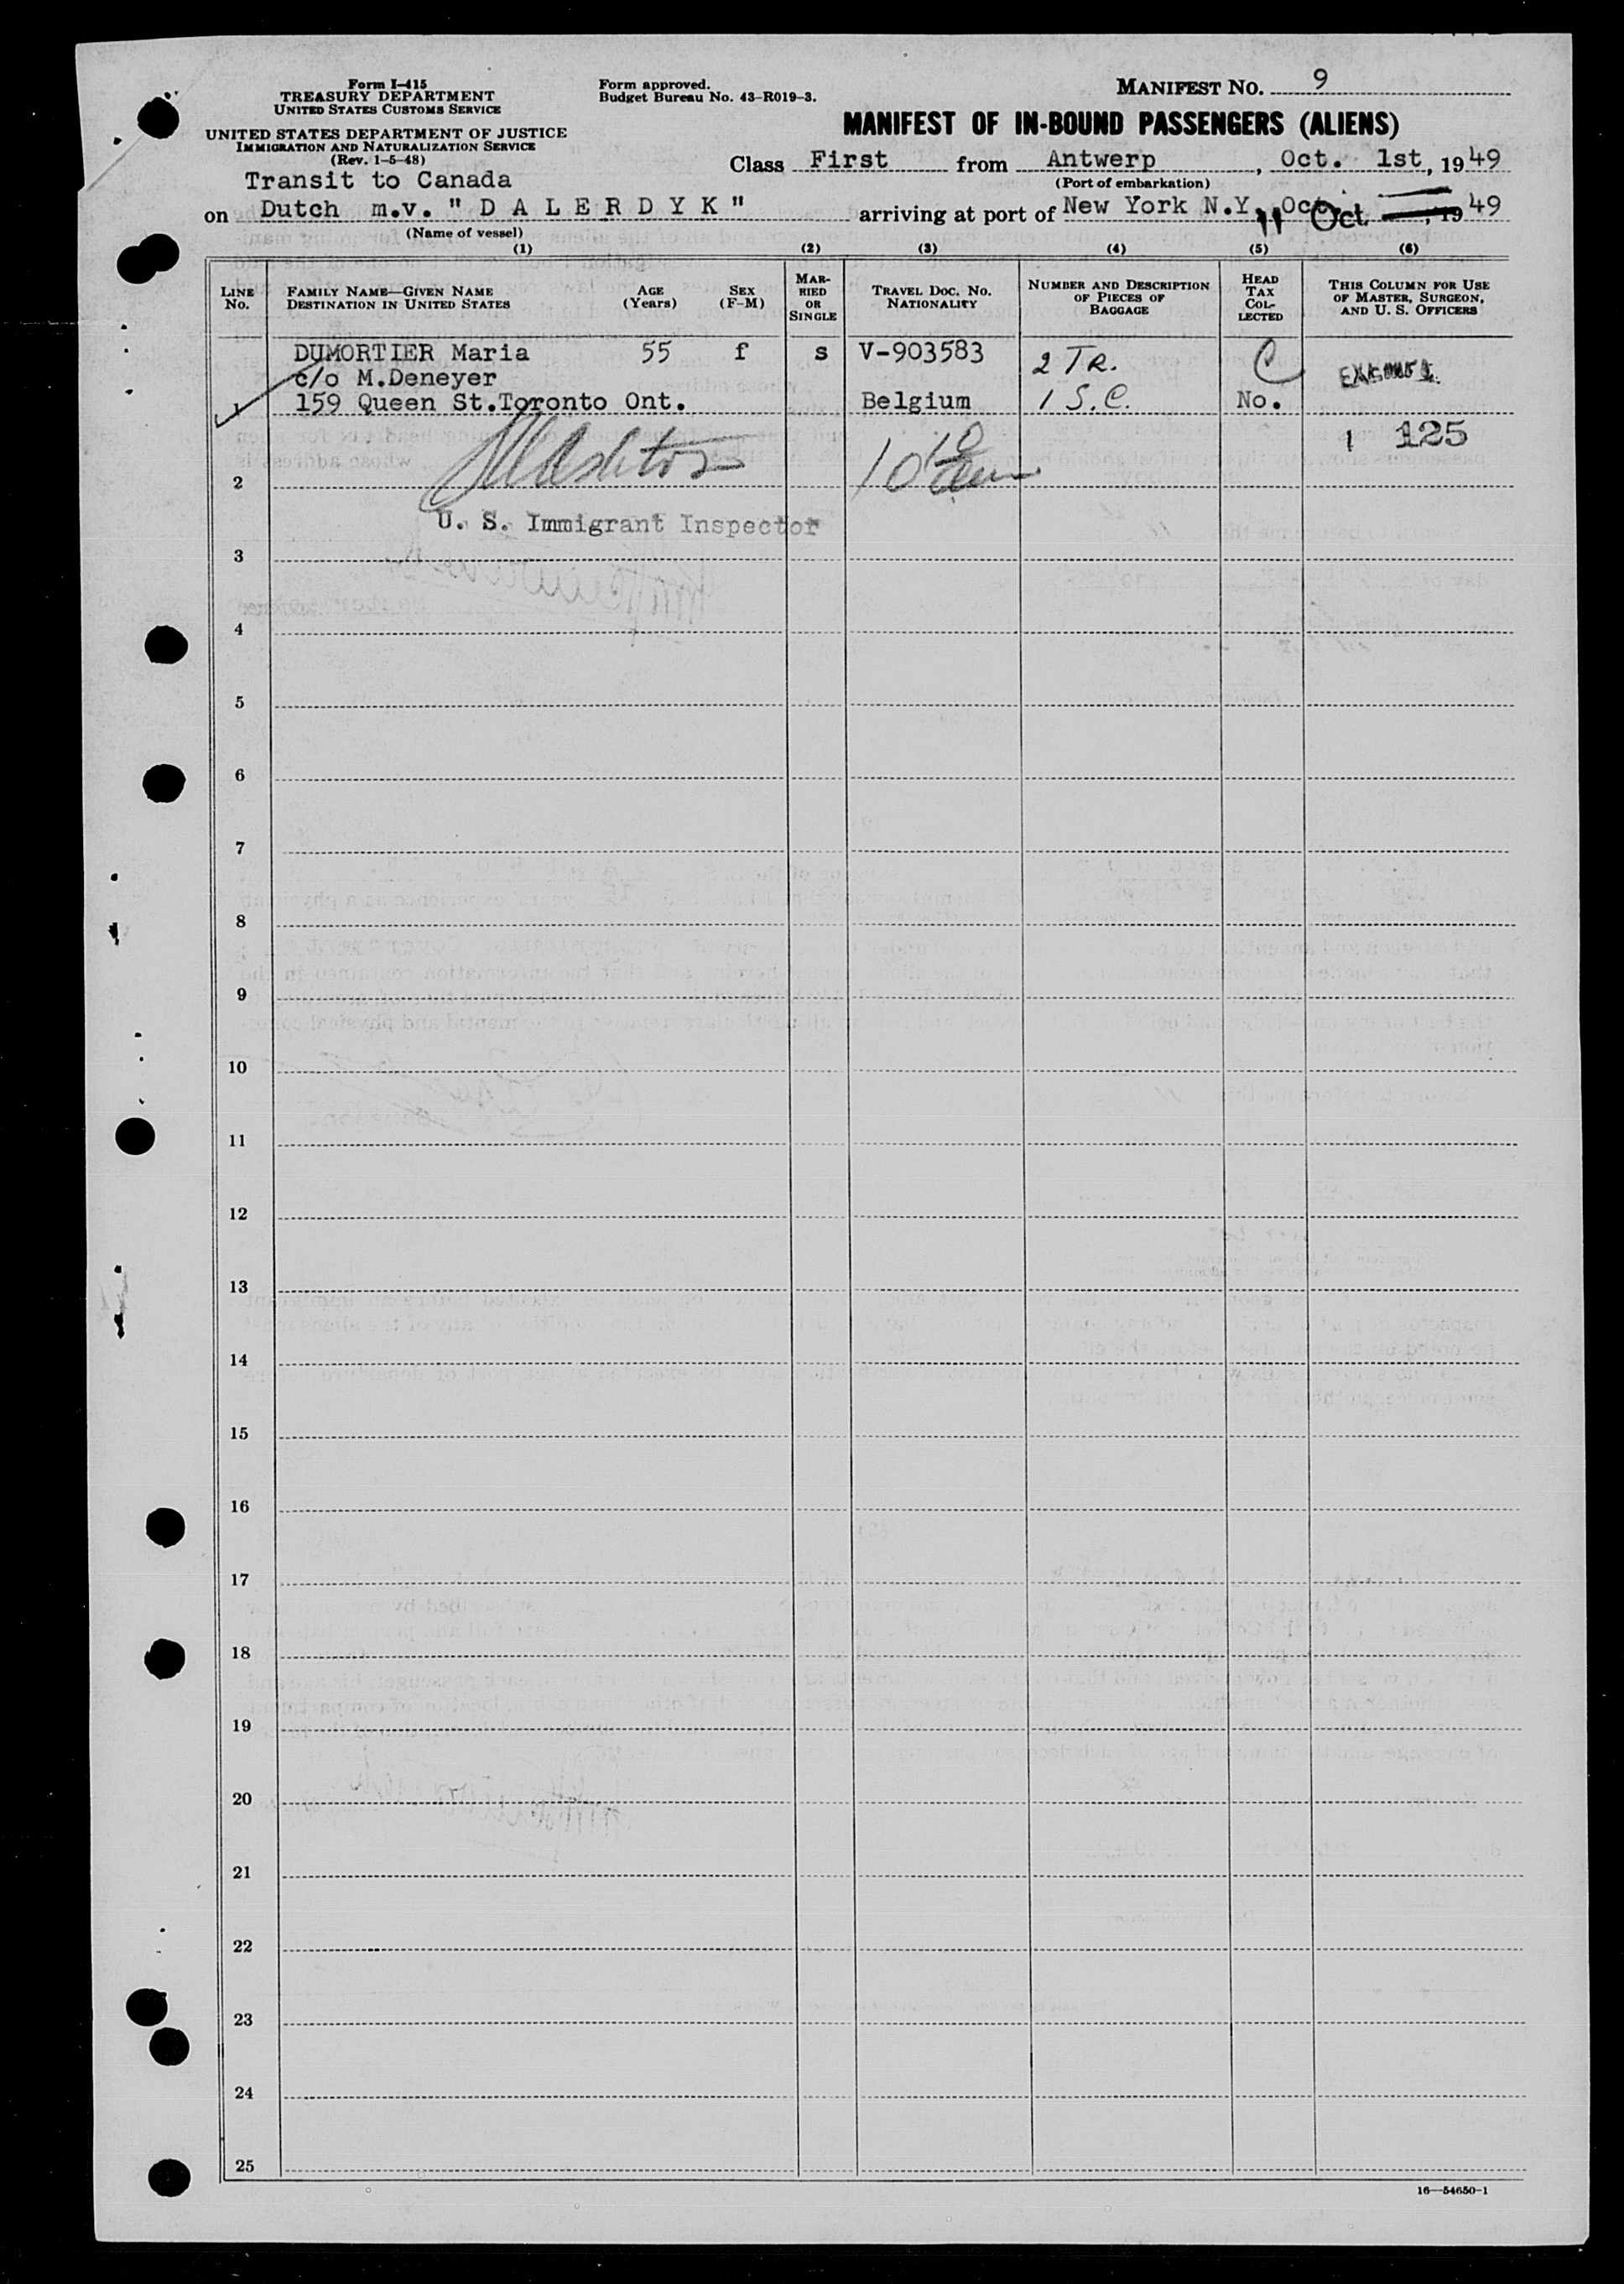 Form I-415
TREASURY DEPARTMENT
UNITED STATES CUSTOMS SERVICE
UNITED STATES DEPARTMENT OF JUSTICE
IMMIGRATION AND NATURALIZATION SERVICE
(Rev. 1-5-48)
Form approved.
Budget Bureau No. 43-R019-3.
MANIFEST NO. 9
MANIFEST OF IN-BOUND PASSENGERS (ALIENS)
Class First from Antwerp, Oct. 1st, 1949
(Port of embarkation)
Transit to Canada
on Dutch m.v. " D A L E R D Y K " arriving at port of New York N.Y, 11 Oct Oct , 19 49
(Name of vessel)
(1) (2) (3) (4) (5) (6)
LINE No. FAMILY NAME—GIVEN NAME DESTINATION IN UNITED STATES AGE (Years) SEX (F-M) MARRIED OR SINGLE TRAVEL DOC. NO. NATIONALITY NUMBER AND DESCRIPTION OF PIECES OF BAGGAGE HEAD TAX COLLECTED THIS COLUMN FOR USE OF MASTER, SURGEON, AND U. S. OFFICERS
DUMORTIER Maria 55 f s V-903583 2 TR. C
c/o M.Deneyer
1 159 Queen St.Toronto Ont. Belgium 1 S.C. No.
1 125
2
U. S. Immigrant Inspector
3
4
5
6
7
8
9
10
11
12
13
14
15
16
17
18
19
20
21
22
23
24
25
16—54650-1